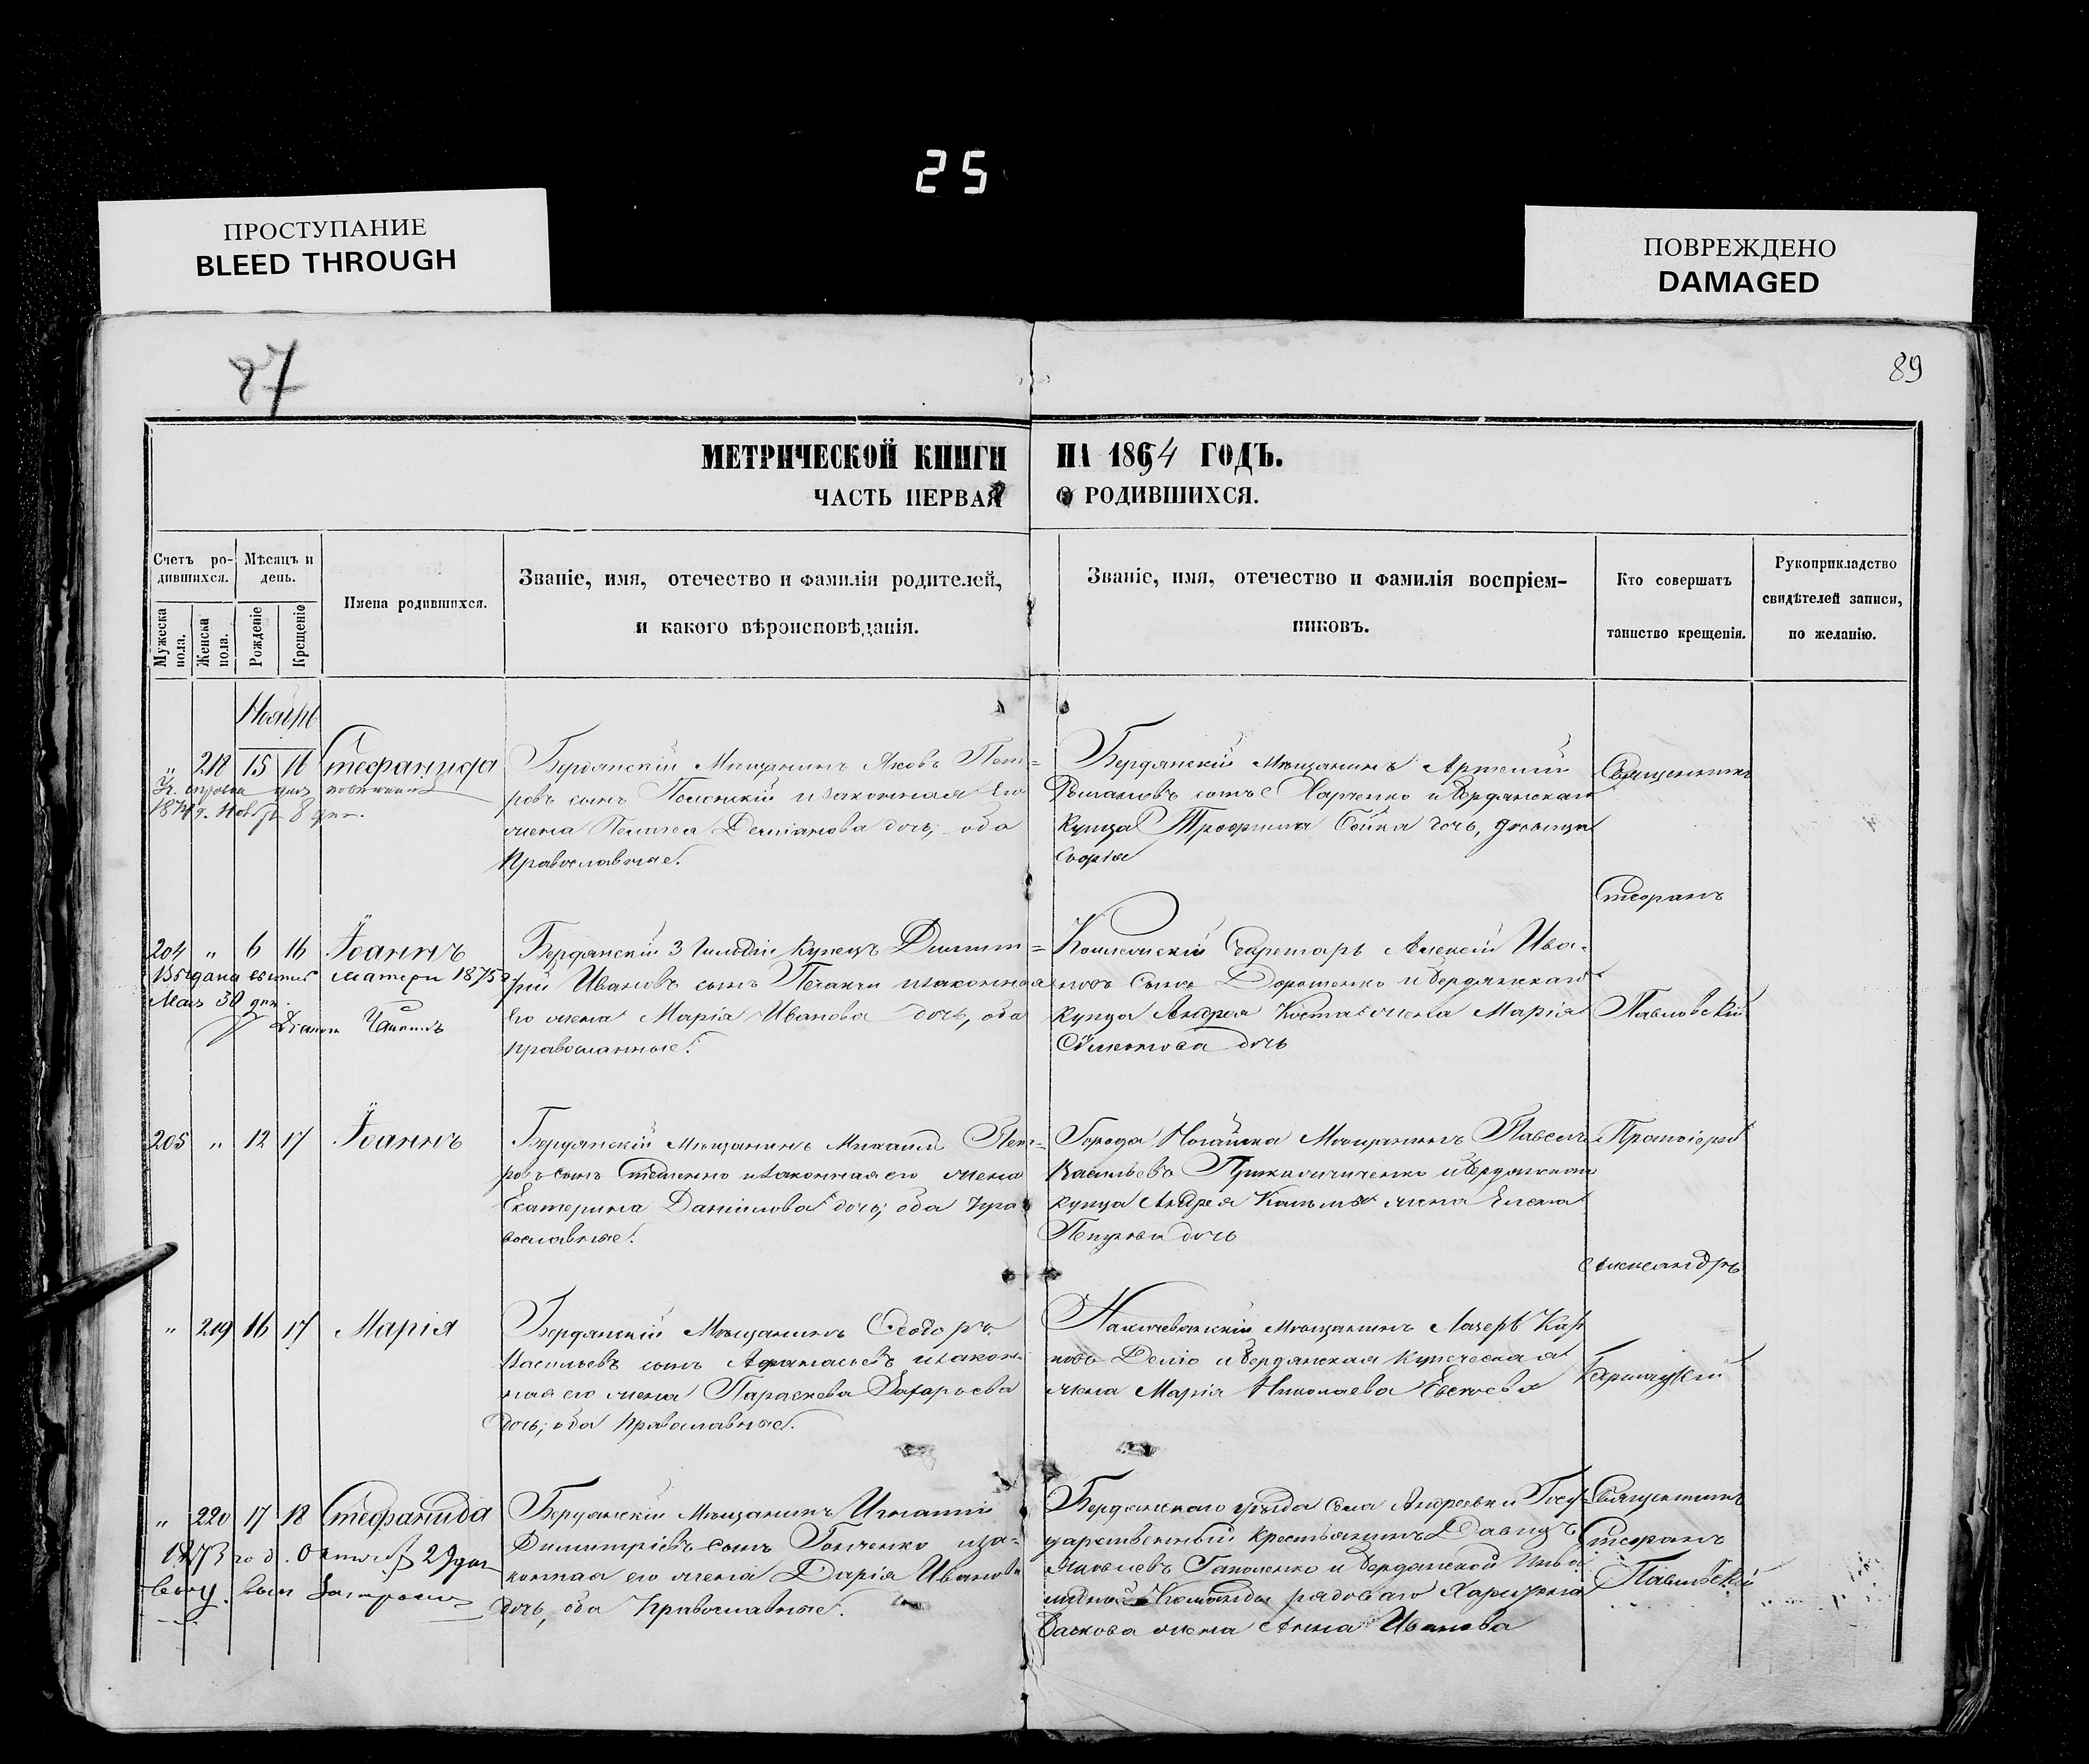 25
ПРОСТУПАНИЕ
BLEED THROUGH
ПОВРЕЖДЕНО
DAMAGED
87
89
МЕТРИЧЕСКОЙ КНИГИ НА 1864 ГОДЪ.
ЧАСТЬ ПЕРВАЯ О РОДИВШИХСЯ.
Счетъ ро-
дившихся.
Мѣсяцъ и
день.
Мужеска
пола.
Женска
пола.
Рожденіе
Крещеніе
Имена родившихся.
Званіе, имя, отечество и фамилія родителей,
и какого вѣроисповѣданія.
Званіе, имя, отечество и фамилія воспріем-
никовъ.
Кто совершатъ
таинство крещенія.
Рукоприкладство
свидѣтелей записи,
по желанію.
Ноября
" 218 15 16 Стефанида
Бердянскій Мѣщанинъ Яковъ Пет=
ровъ сынъ и законная его
жена Пелагея Даміанова дочь, оба
Православные.
Бердянскій мѣщанинъ Артемій
Романовъ сынъ Харченко и бердянскаго
купца Трофима Бойка дочь, дѣвица
Софія
Священникъ
Стефанъ
Павловскій
204 " 6 16 Іоаннъ
матери 1875
Мая 30 дня.
Бердянскій 3 Гильдіи Купецъ Димит=
рій Ивановъ сынъ и законная
его жена Марія Иванова дочь, оба
православные.
Секретарь Алексѣй Ива-
новъ сынъ Дорошенко и бердянскаго
купца Андрея Коста жена Марія
дочь
205 " 12 17 Іоаннъ
Бердянскій мѣщанинъ Михаилъ Пет=
ровъ сынъ и законная его жена
Екатерина Даніилова дочь, оба пра
вославные.
Города Ногайска Мѣщанинъ Павелъ
Васильевъ и бердянскаго
купца Андрея жена Елена
дочь
Протоіерей
Александръ
" 219 16 17 Марія
Бердянскій Мѣщанинъ Ѳеодоръ
Васильевъ сынъ Афанасьевъ и закон-
ная его жена Параскева Захарьева
дочь, оба православные.
Нахичеванскій мѣщанинъ Лазерь Кар
повъ и бердянская купеческая
жена Марія Николаева
" 220 17 18 Стефанида
1873 год. Октября 29 дня
Бердянскій Мѣщанинъ Игнатій
Димитріевъ сынъ и за-
конная его жена Дарія Иванова
дочь, оба Православные.
Бердянскаго уѣзда села Андреевки Госу-
дарственный крестьянинъ Давидъ
Яковлевъ Гапоненко и бердянской Инва
лидной Команды рядоваго Харитона
жена Анна Иванова
Священникъ
Стефанъ
Павловскій